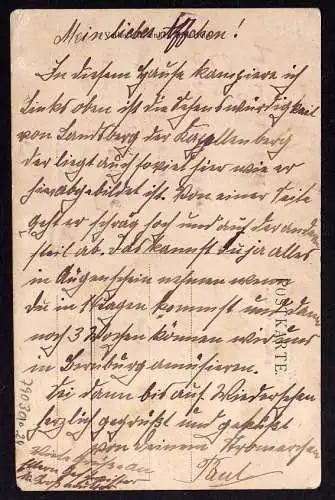 Mein liebes Äffchen!
In diesem Hause kampiere ich
Links oben ist die Sehenswürdigkeit
von Landsberg der Kapellenberg
der liegt auch soviel hier wie er
hier abgebildet ist. Von einer Seite
geht er schräg hoch und auf der andern
steil ab. Das kannst du ja alles
in Augenschein nehmen wenn
du in 14 Tagen kommst und dann
noch 3 Wochen können wir uns
in Bernburg amüsieren.
Bei dann bis auf Wiedersehen
herzlich gegrüßt und geküßt
von Deinem
Paul
Viele Grüße an
Eltern Geschwister
POSTKARTE.